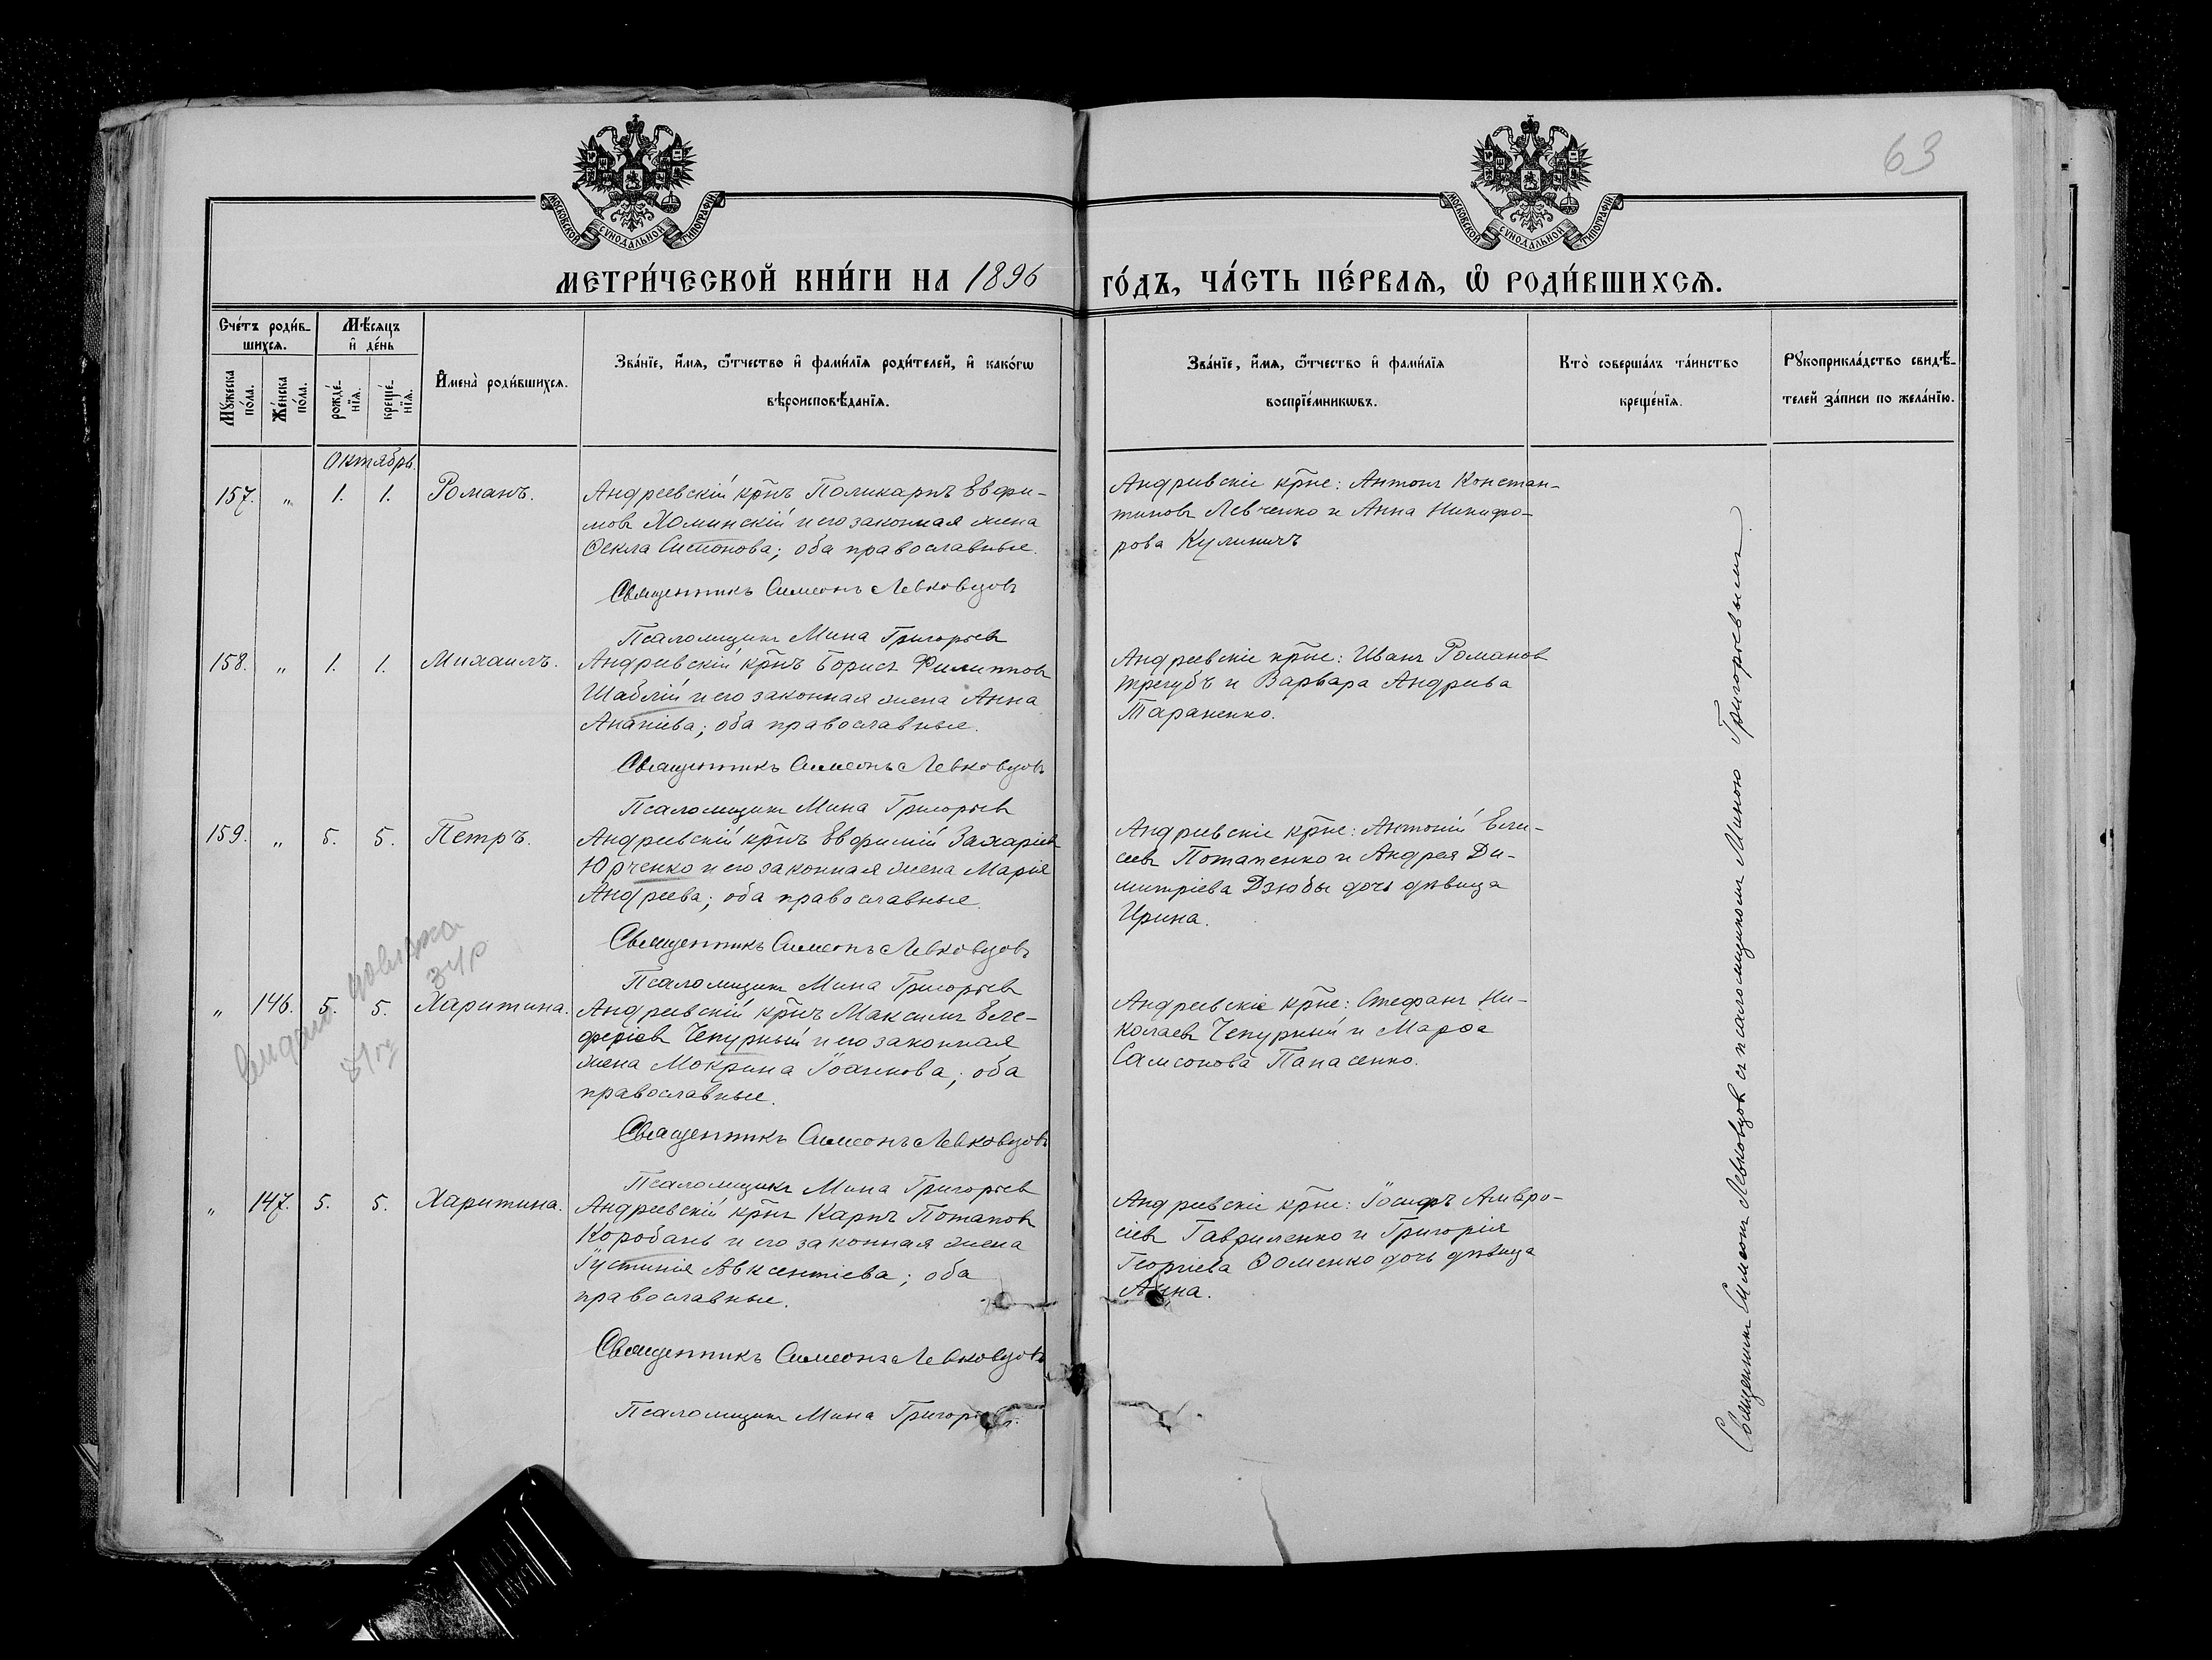 63
МОСКОВСКОЙ СУНОДАЛЬНОЙ ТИПОГРАФІИ
МОСКОВСКОЙ СУНОДАЛЬНОЙ ТИПОГРАФІИ
МЕТРИ́ЧЕСКОЙ КНИ́ГИ НА 1896 ГО́ДЪ, ЧА́СТЬ ПЕ́РВАѦ, Ѡ҆ РОДИ́ВШИХСѦ.
Сче́тъ роди́в-
шихсѧ.
Мꙋ́жеска по́ла.
Же́нска по́ла.
Мѣ́сѧцъ
и҆ де́нь
рожде́-
нїѧ.
креще́-
нїѧ.
И҆мена̀ роди́вшихсѧ.
Зва́нїе, и҆́мѧ, ѻ҆́тчество и҆ фами́лїѧ роди́телей, и҆ како́гѡ
вѣроисповѣ́данїѧ.
Зва́нїе, и҆́мѧ, ѻ҆́тчество и҆ фами́лїѧ
воспрїе́мникѡвъ.
Кто̀ соверша́лъ та́инство
креще́нїѧ.
Рꙋкоприкла́дство свидѣ́-
телей за́писи по жела́нїю.
Октябрь.
157. „ 1. 1. Романъ.
Андреевскій кр̃нъ Поликарпъ Евфи-
мовъ Хоминскій и его законная жена
Ѳекла Симонова; оба православные.
Священникъ Симеонъ Левковцовъ
Псаломщикъ Мина Григорьев
Андреевскіе кр̃не: Антонъ Констан-
тиновъ Левченко и Анна Никифо-
рова Кулиничъ
158. „ 1. 1. Михаилъ.
Андреевскій кр̃нъ Борисъ Филипповъ
Шаблій и его законная жена Анна
Ананіева; оба православные.
Священникъ Симеонъ Левковцовъ
Псаломщикъ Мина Григорьев
Андреевскіе кр̃не: Иванъ Романов
Трегубъ и Варвара Андреева
Тараненко.
159. „ 5. 5. Петръ.
Андреевскій кр̃нъ Евфимій Захаріев
Юрченко и его законная жена Марія
Андреева; оба православные.
Священникъ Симеонъ Левковцовъ
Псаломщикъ Мина Григорьев
Андреевскіе кр̃не: Антоній Ели-
сеев Потапенко и Андрея Ди-
митріева Дзюбы дочь дѣвица
Ирина.
„ 146. 5. 5. Харитина.
Андреевскій кр̃нъ Максимъ Еле-
феріев Чепурный и его законная
жена Мокрина Іоаннова; оба
православные.
Священникъ Симеонъ Левковцовъ
Псаломщикъ Мина Григорьев
Андреевскіе кр̃не: Стефанъ Ни-
колаевъ Чепурный и Марѳа
Самсонова Панасенко.
„ 147. 5. 5. Харитина.
Андреевскій кр̃нъ Карпъ Потапов
Коробань и его законная жена
Іустинія Авксентіева; оба
православные.
Священникъ Симеонъ Левковцовъ
Псаломщикъ Мина Григорьев
Андреевскіе кр̃не: Іосифъ Амвро-
сіевъ Гавриленко и Григорія
Георгіева Ѳоменко дочь дѣвица
Анна.
Священникъ Симеонъ Левковцов съ псаломщикомъ Миною Григорьевымъ.